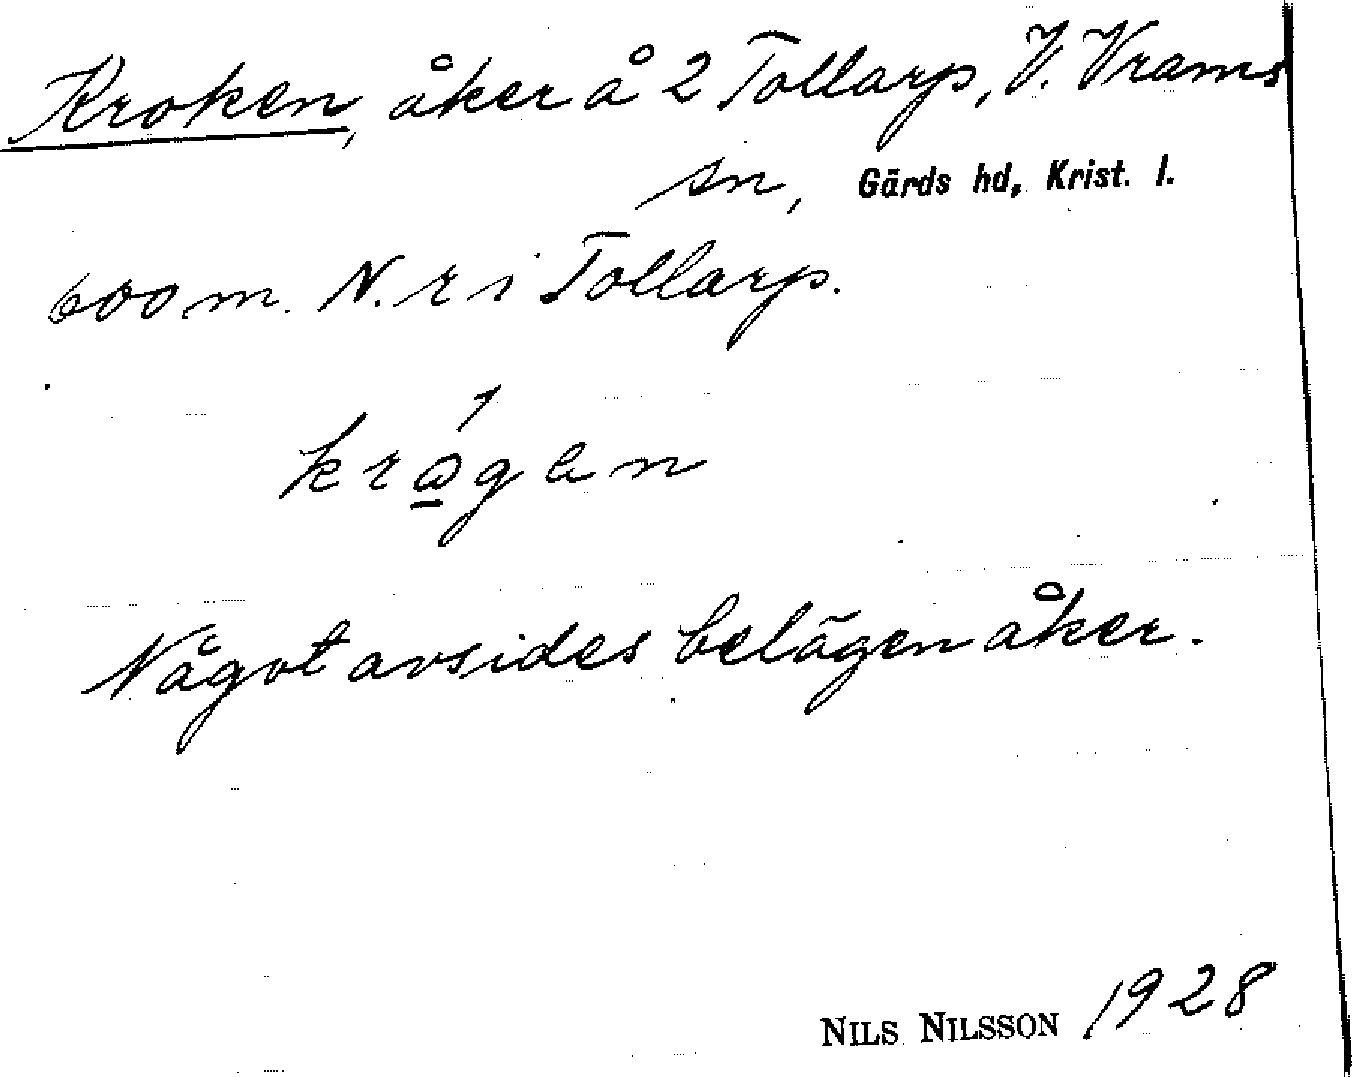 Kroken, åker å 2 Tollarp, V. Vrams
sn, Gärds hd, Krist. l.
600 m. N. r i Tollarp.
Något avsides belägen åker.
NILS NILSSON 1928